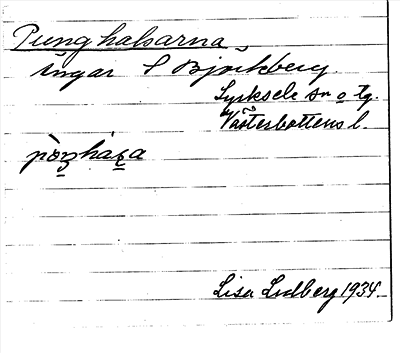 Punghalsarna
ängar S Björkberg.
Lycksele sn o tg.
Västerbottens l.
Lisa Lidberg 1934.